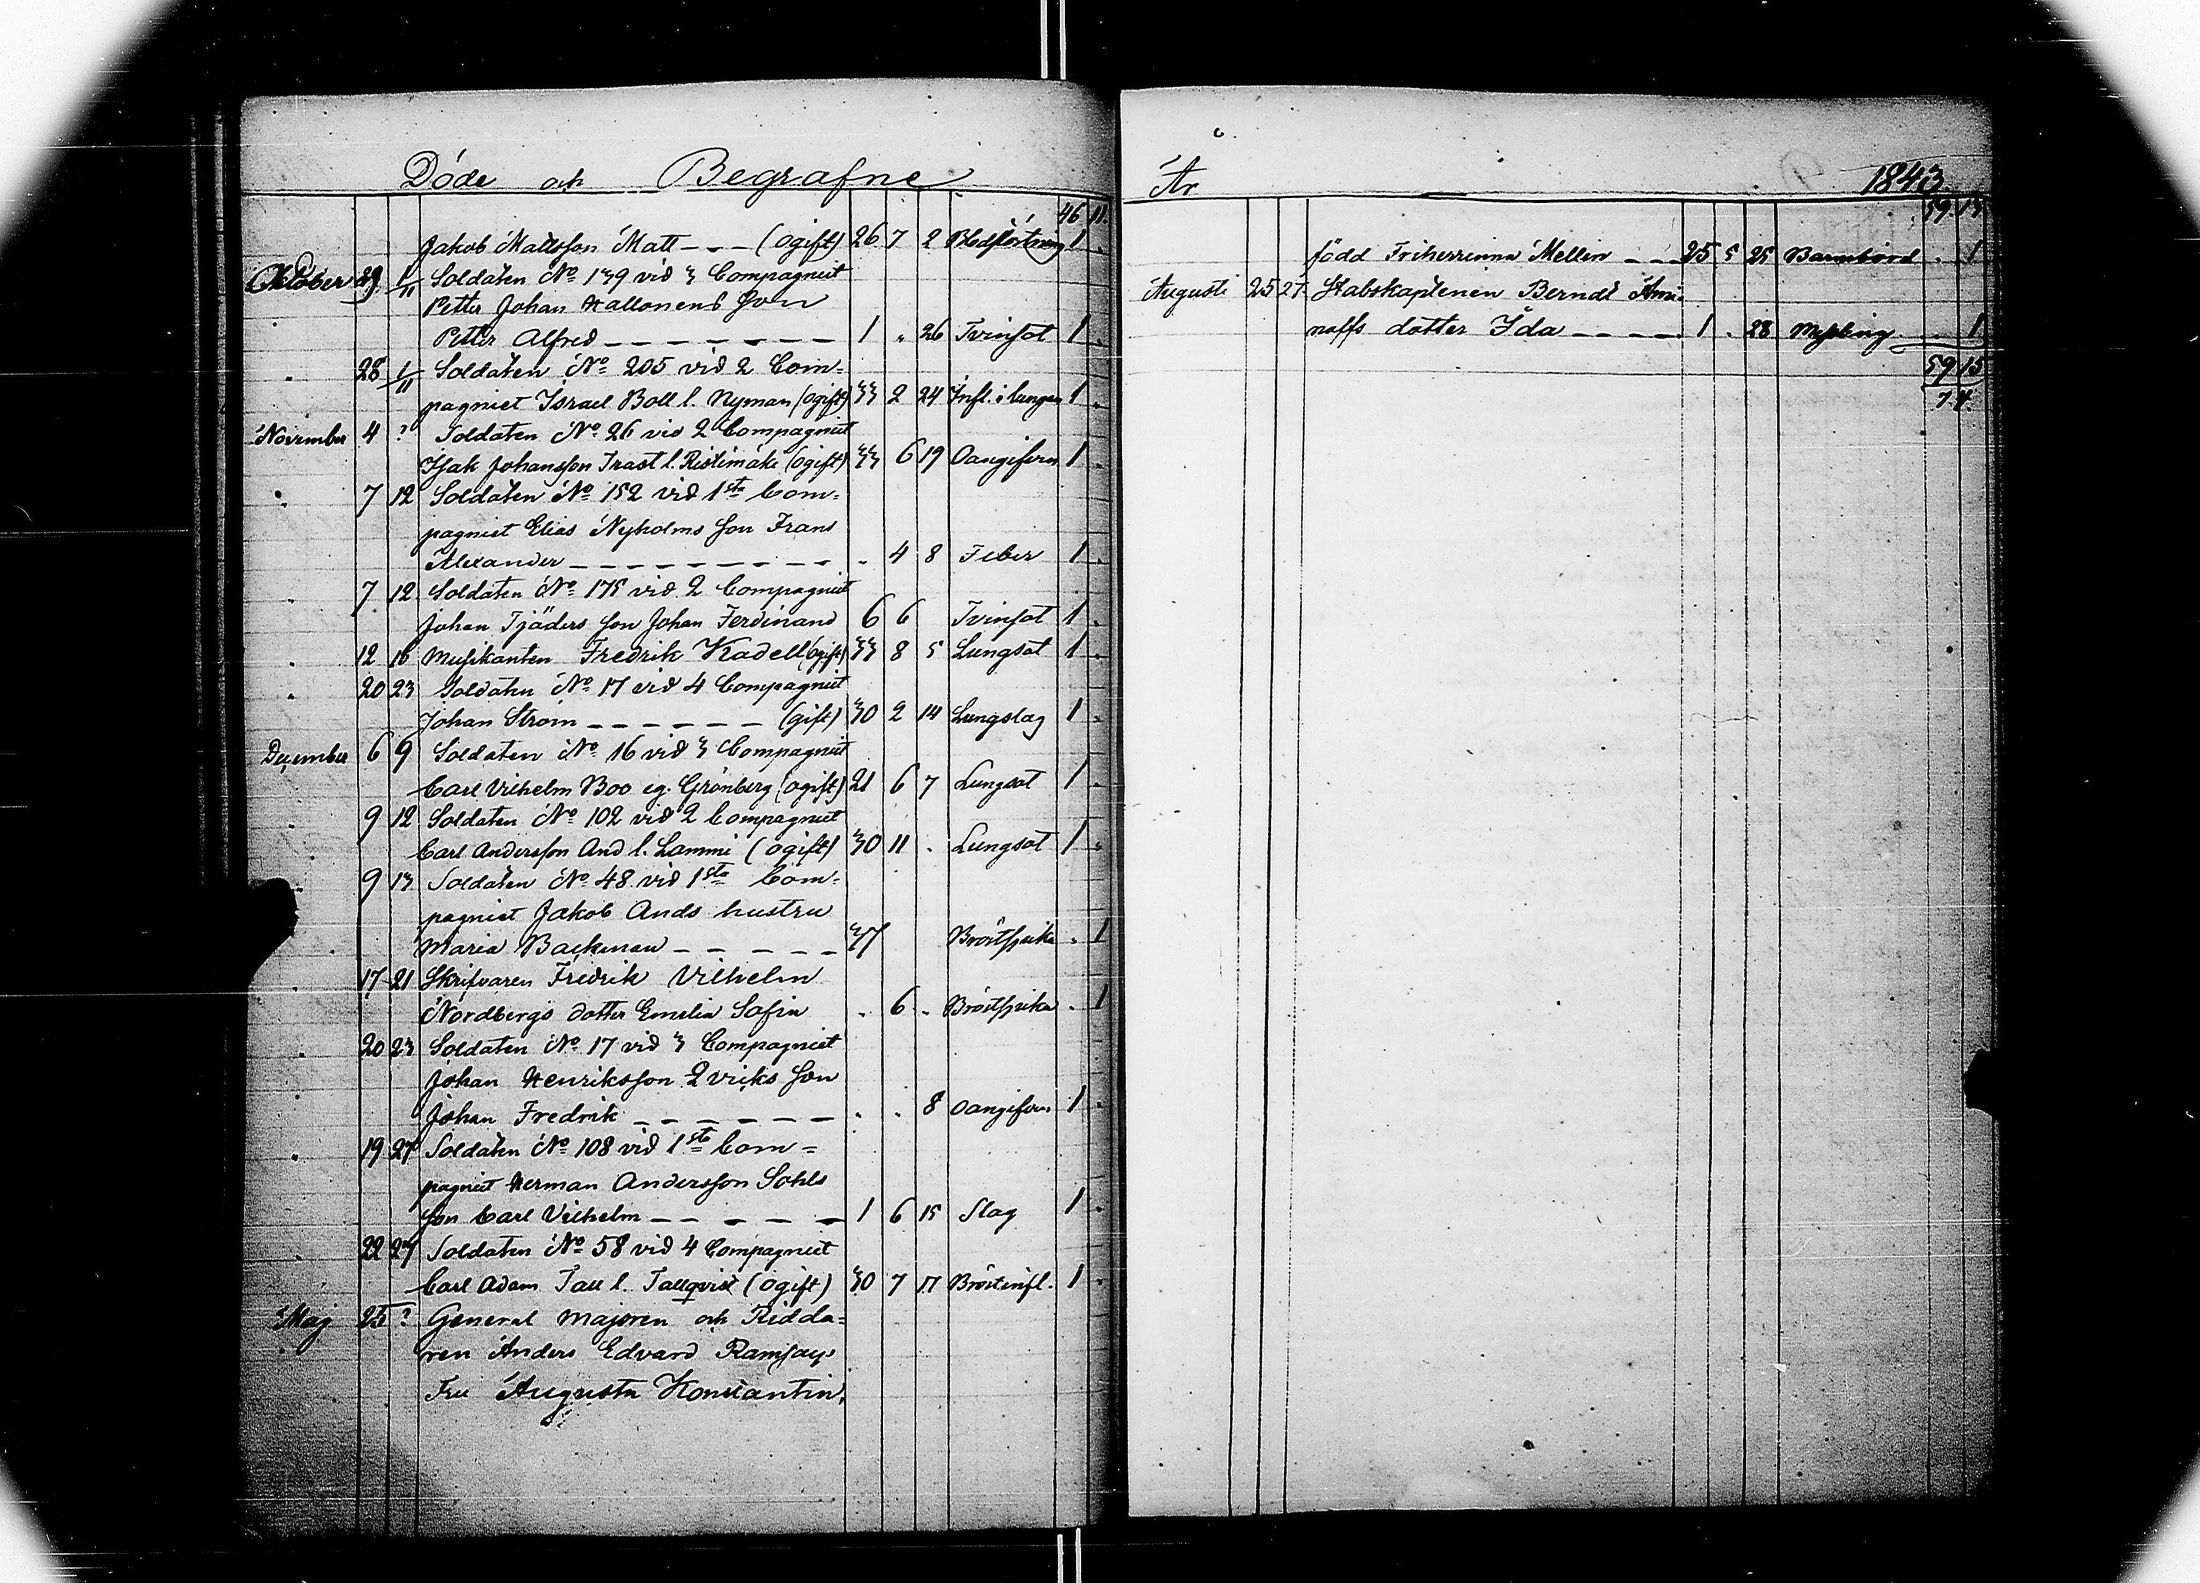 Döde och Begrafne
46 11.
Jakob Mattsson Matt - - - (ogift) 26 7 2 Blodstörtning 1 .
Oktober 29 1/11 Soldaten No 139 vid 3 Compagniet
Petter Johan Hallonens son
Petter Alfred - - - - - - - - 1 " 26 Tvinsot 1 .
" 28 1/11 Soldaten No 205 vid 2 Com=
pagniet Israel Boll l. Nyman (ogift) 33 2 24 Infl. i lungan 1 .
November 4 ? Soldaten No 26 vid 2 Compagniet
Isak Johansson Trast l. Ristimäki (ogift) 33 6 19 Oangifven 1 .
" 7 12 Soldaten No 152 vid 1sta Com=
pagniet Elias Nyholms son Frans
Alexander - - - - - - - - - . 4 8 Feber 1 .
7 12 Soldaten No 175 vid 2 Compagniet
Johan Tjäders son Johan Ferdinand 6 6 Tvinsot 1 .
" 12 16 Musikanten Fredrik Kadell (ogift) 33 8 5 Lungsot 1 .
" 20 23 Soldaten No 17 vid 4 Compagniet
Johan Ström - - - - - - (gift) 30 2 14 Lungslag 1 .
December 6 9 Soldaten No 16 vid 3 Compagniet
Carl Vilhelm Boo eg. Grönberg (ogift) 21 6 7 Lungsot 1 .
" 9 12 Soldaten No 102 vid 2 Compagniet
Carl Andersson And l. Lammi (ogift) 30 11 . Lungsot 1 .
" 9 13 Soldaten No 48 vid 1sta Com=
pagniet Jakob Ands hustru
Maria Backman - - - - - 37 Bröstsjuka . 1
" 17 21 Skrifvaren Fredrik Vilhelm
Nordbergs dotter Emelia Sofia . 6 . Bröstsjuka . 1
" 20 23 Soldaten No 17 vid 3 Compagniet
Johan Henriksson Qvicks son
Johan Fredrik - - - - - - . . 8 Oangifven 1 .
" 19 27 Soldaten No 108 vid 1sta Com=
pagniet Herman Andersson Sohls
son Carl Vilhelm - - - - - 1 6 15 Slag 1 .
" 22 27 Soldaten No 58 vid 4 Compagniet
Carl Adam Tall l. Tallqvist (ogift) 30 7 17 Bröstinfl. 1 .
Maj 25 ? General Majoren och Ridda=
ren Anders Edvard Ramsays
Fru Augusta Konstantin,
År 1843.
59. 13
född Friherrinna Mellin - - - 25 5 25 Barnbörd . 1
Augusti 25 27 Stabskaptenen Berndt Ami=
noffs dotter Ida - - - - 1 . 28 Messling . 1
59 15
74.